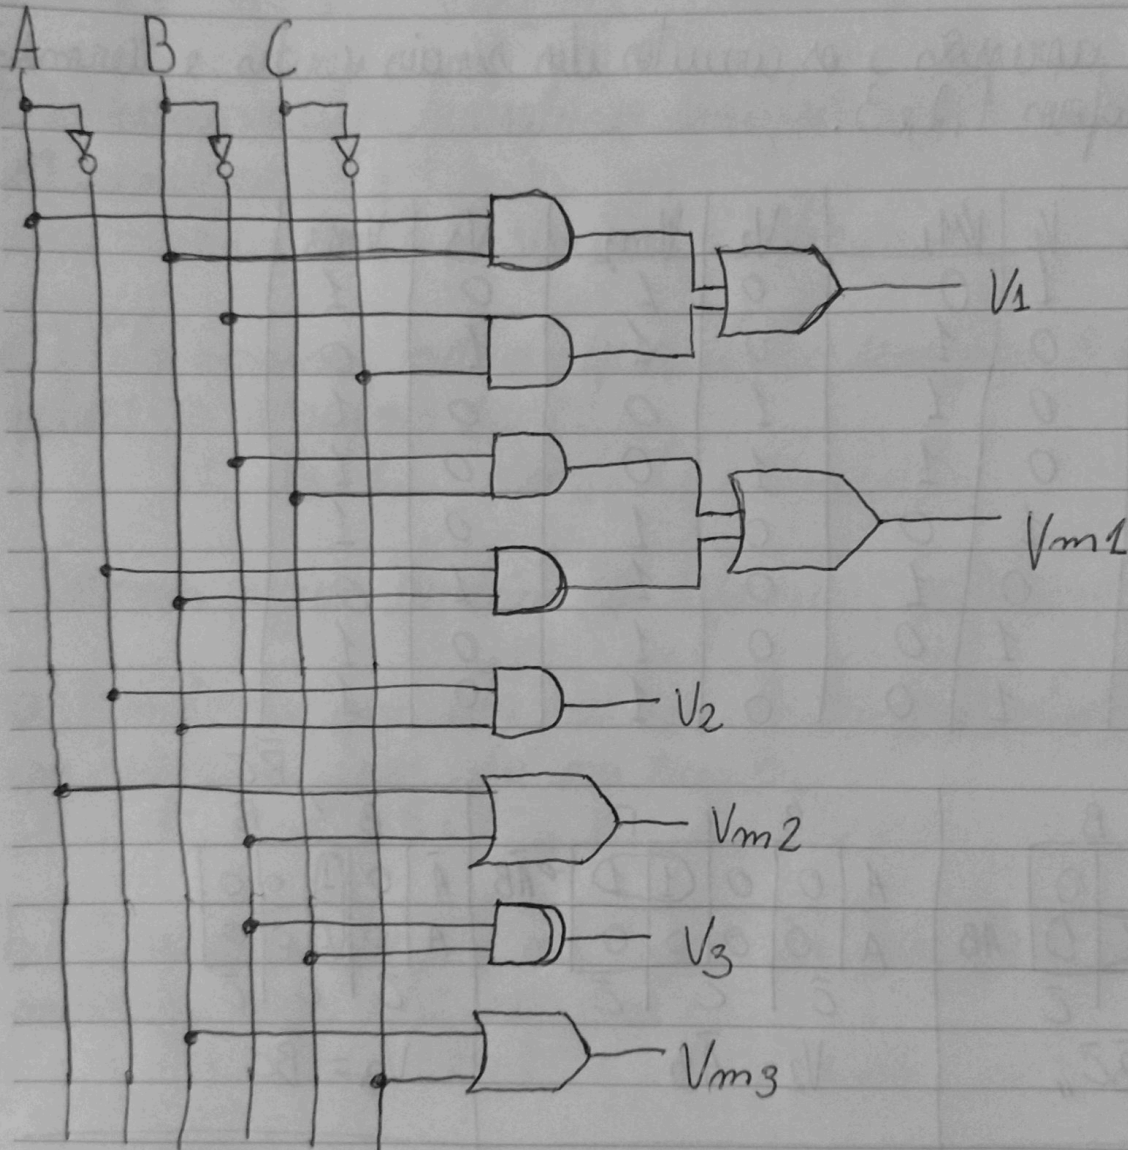 A B C
V1
Vm1
V2
Vm2
V3
Vm3